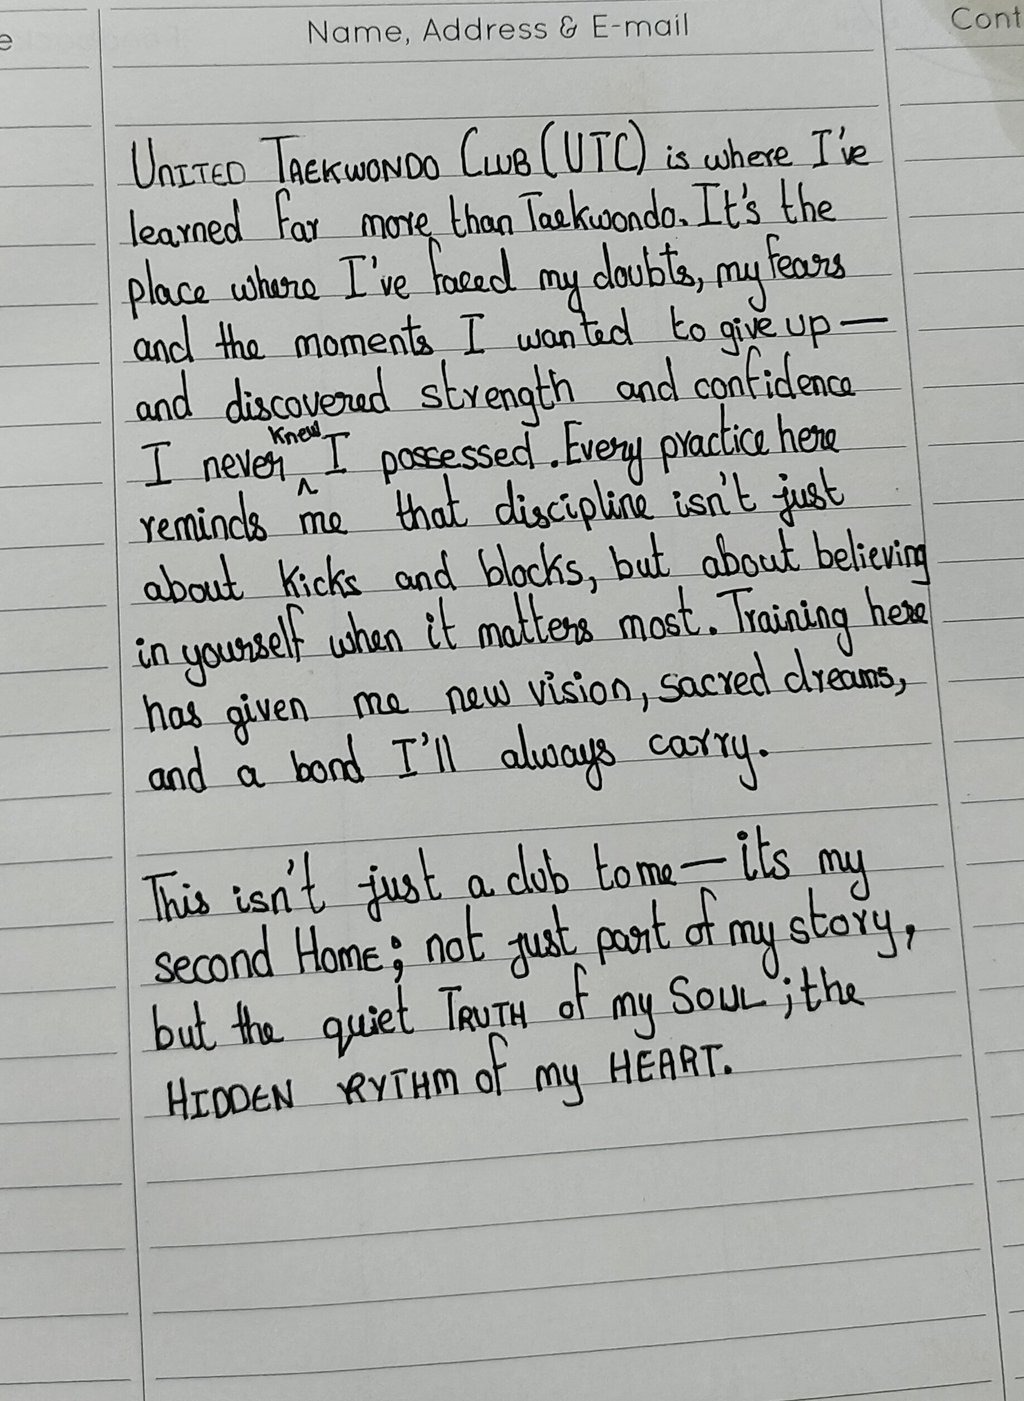 e
Name, Address & E-mail
Cont
UNITED TAEKWONDO CLUB (UTC) is where I've
learned far more than Taekwondo. It's the
place where I've faced my doubts, my fears
and the moments I wanted to give up —
and discovered strength and confidence
I never knew I possessed. Every practice here
reminds me that discipline isn't just
about kicks and blocks, but about believing
in yourself when it matters most. Training here
has given me new vision, sacred dreams,
and a bond I'll always carry.
This isn't just a club to me — its my
second HOME; not just part of my story,
but the quiet TRUTH of my SOUL; the
HIDDEN RYTHM of my HEART.